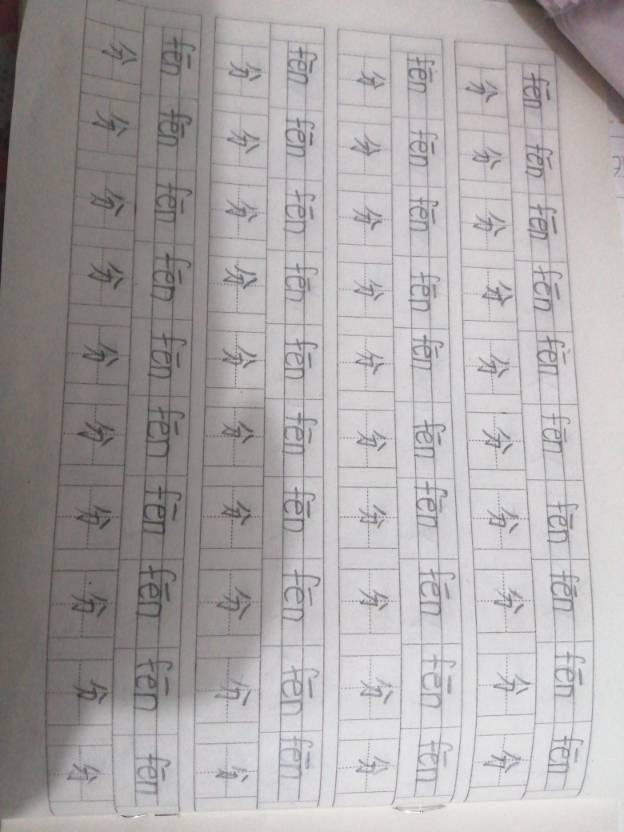 fēn fēn fēn fēn fēn fēn fēn fēn fēn fēn
分 分 分 分 分 分 分 分 分 分
fēn fēn fēn fēn fēn fēn fēn fēn fēn fēn
分 分 分 分 分 分 分 分 分 分
fēn fēn fēn fēn fēn fēn fēn fēn fēn fēn
分 分 分 分 分 分 分 分 分 分
fēn fēn fēn fēn fēn fēn fēn fēn fēn fēn
分 分 分 分 分 分 分 分 分 分